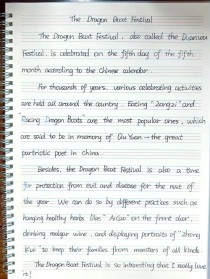 The Dragon Boat Festival
The Dragon Boat Festival, also called the Duanwu
Festival, is celebrated on the fifth day of the fifth
month according to the Chinese calendar.
For thousands of years, various celebrating activities
are held all around the country. Eating "Zongzi" and
Racing Dragon Boats are the most popular ones, which
are said to be in memory of Qu Yuan — the great
partriotic poet in China.
Besides, the Dragon Boat Festival is also a time
for protection from evil and disease for the rest of
the year. We can do so by different practices such as
hanging healthy herbs like "AiCao" on the front door,
drinking realgar wine, and displaying portraits of "Zhong
Kui" to keep their families from monsters of all kinds.
The Dragon Boat Festival is so interesting that I really love
it!